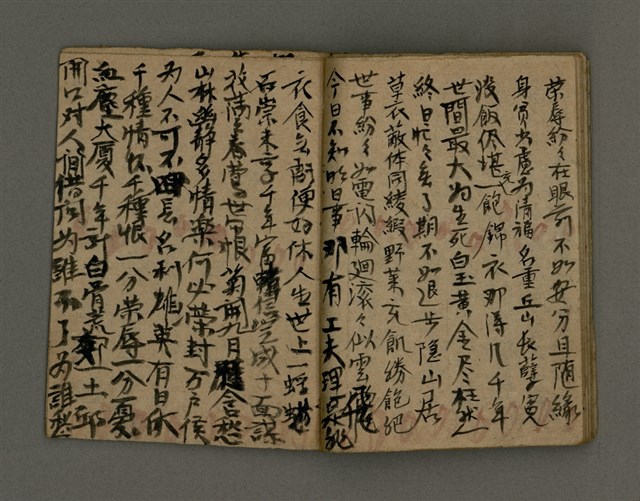 榮辱紛々在眼前不如安分且随緣
身貧少慮為清福名重丘山長孽寃
淡飯伓堪充一飽錦衣那得几千年
世間最大为生死白玉黄金尽枉然
終日忙々無了期不如退步隐山居
草衣蔽体同綾緞野菜充飢勝飽肥
世事紛々如電闪輪廻滾々似雲飛
今日不知明日事那有工夫理是非
衣食無虧便好休人生世上一蜉蝣
石崇未享千年富韓信空成十面謀
花落三春鶯世恨菊開九月雁含愁
山林幽静多情楽何必荣封万户侯
为人不可不回長名利雄英有日收
千種情怀千種恨一分荣辱一分憂
血塵大厦千年計白骨荒郊一土邱
開口对人間借问为誰不了为誰愁